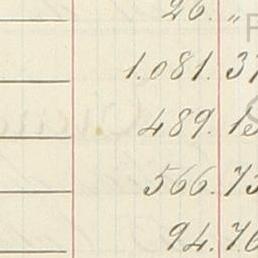 26. "
1.081. 37
489. 15
566. 75
94. 76